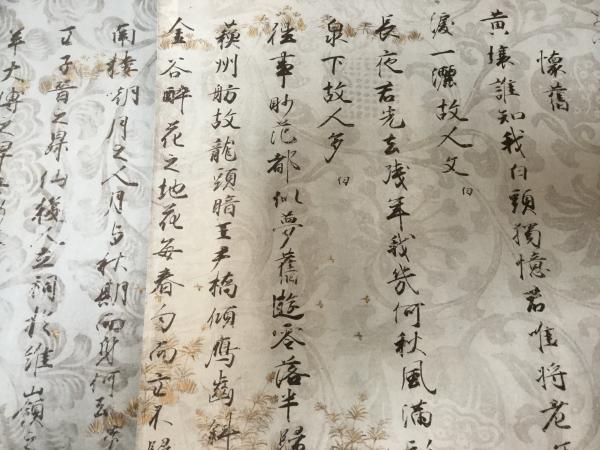 懷舊
黄壤誰知我白頭獨憶君唯將老年
淚一灑故人文 白
長夜君先去殘年我幾何秋風滿
泉下故人多 白
往事眇茫都似夢舊遊零落半歸
蘇州舫故龍頭暗王尹橋傾鴈齒斜
金谷醉花之地花每春匂而主不歸
南樓嘲月之人月与秋期而身何去
王子晉之昇仙後人立祠於緱嶺之
羊太傅之早